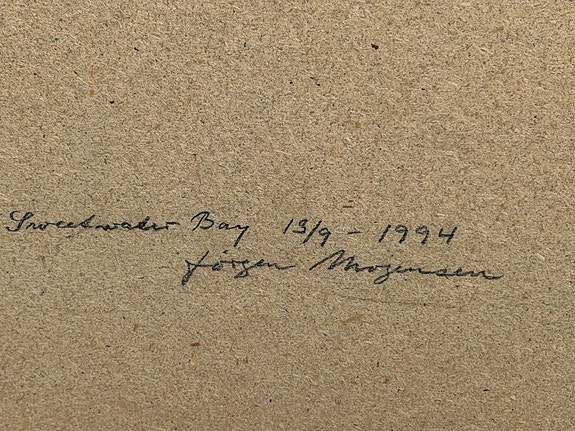 Sweetwater Bay 13/9 - 1994
Jörgen Mogensen